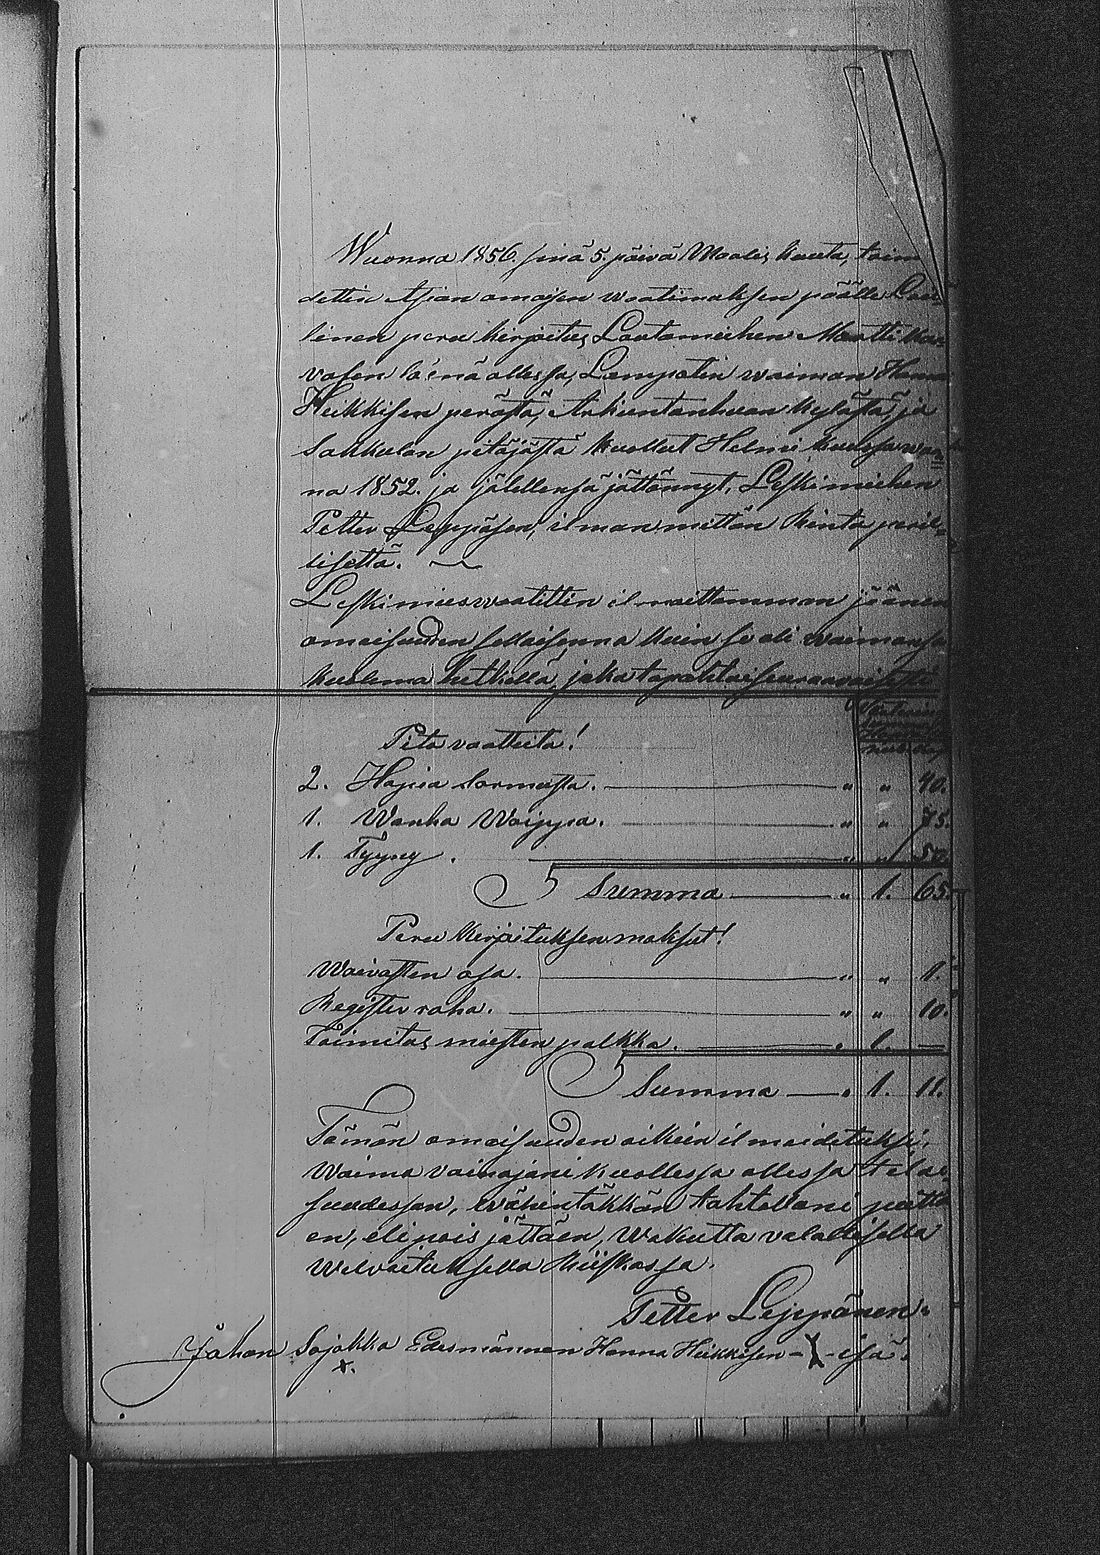 Wuonna 1856. sinä 5. päivä Maalis kuuta, toim
dettin Asian omaisen waatimaksen päälle Lail-
linen peru kirjoitus Lautamiehen Matti
läsnä ollessa, Lampotin waiman Hanna
Heikkisen perästä, Arkuntanhuan kylästä, ja
Sakkulan pitäjästä kuollut Helmi kuussa wuon-
na 1852. ja jälellensä jättännyt, Leskimiehen
Petter Leppäsen, ilman mittän Rinta peril-
lisettä.
Leskimies waatittin ilmoittamman jäänen
omaisuuden sellaisenna kuin se oli waimonsa
kuolema hetkellä, joka tapahtui seuraavaisesti
Pito vaatteita!
2. Hopia Sormusta. " " 40.
1. Wanha Waippa. " " 75.
1. Tyyny. " " 50.
Summa " 1. 65.
Peru kirjoituksen maksut!
Waivasten osa. " " 1.
Register raha. " " 10.
Toimitus miesten palkka. " 1. —
Summa " 1. 11.
Tämän omaisuuden oikein ilmoidetuksi,
Waimo vainajani kuollessa ollessa tilai-
suudessan, wähintäkkän tahtollani peittä
en, eli pois jättäen, Wakutta valallisella
Welvoituksella Kiiskassa.
Petter Leppänen.
Johan Sojakka Edesmännen Hanna Heikkisen – X – isä.
x.